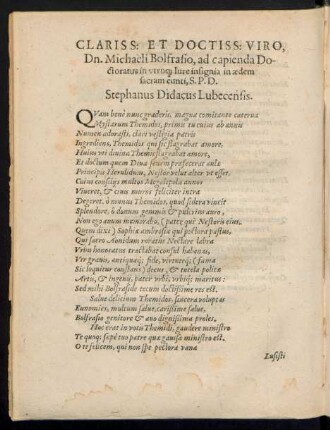 CLARISS: ET DOCTISS: VIRO,
Dn. Michaeli Bolfrasio, ad capienda Do-
ctoratus in utroq; Iure insignia in ædem
sacram eunti, S. P. D.
Stephanus Didacus Lubecensis.
QVam bené nunc graderis, magna comitante caterva
Mystarum Themidos, primis in cuius ab annis
Numen adorasti, clari vestigia patris
Ingrediens, Themidos qui sic flagrabat amore,
Huius vti divina Themis flagrabat amore,
Et dictum quem Diva senem præfecerat aulæ
Principis Herulidum, Nestor velut alter vt esset.
Cuius consilijs multos Megalopolis annos
Viveret, & eius muros feliciter intra
Degeret, ô mundi Themidos, quod sidera vincit
Splendore, ô divum gemmis & pulcrius auri,
Non ego vanum memorabo, (pater qui Nestoris eius,
Quem dixi) Sophiæ ambrosia qui pectora pastus,
Qui sacro Aonidum roratus Nectare labra
Vrbis honoratus tractabat consul habenas,
Vir gravis, antiquaq; fide, virtuteq; (fama
Sic loquitur constans) decens, & cutela polito
Artis, & ingenij, pater vrbis, vrbisq; maritus:
Sed mihi Bolfraside tecum doctissime res est.
Salve delicium Themidos, sincera voluptas
Eunomies, multum salve, carissime salve,
Bolfrasio genitore & avo dignissima proles.
Huc erat in votis Themidi, gaudere ministro
Te quoq; sæpe tuo patre quæ gavisa ministro est.
O te felicem, qui non spe pectora vana
Lusisti